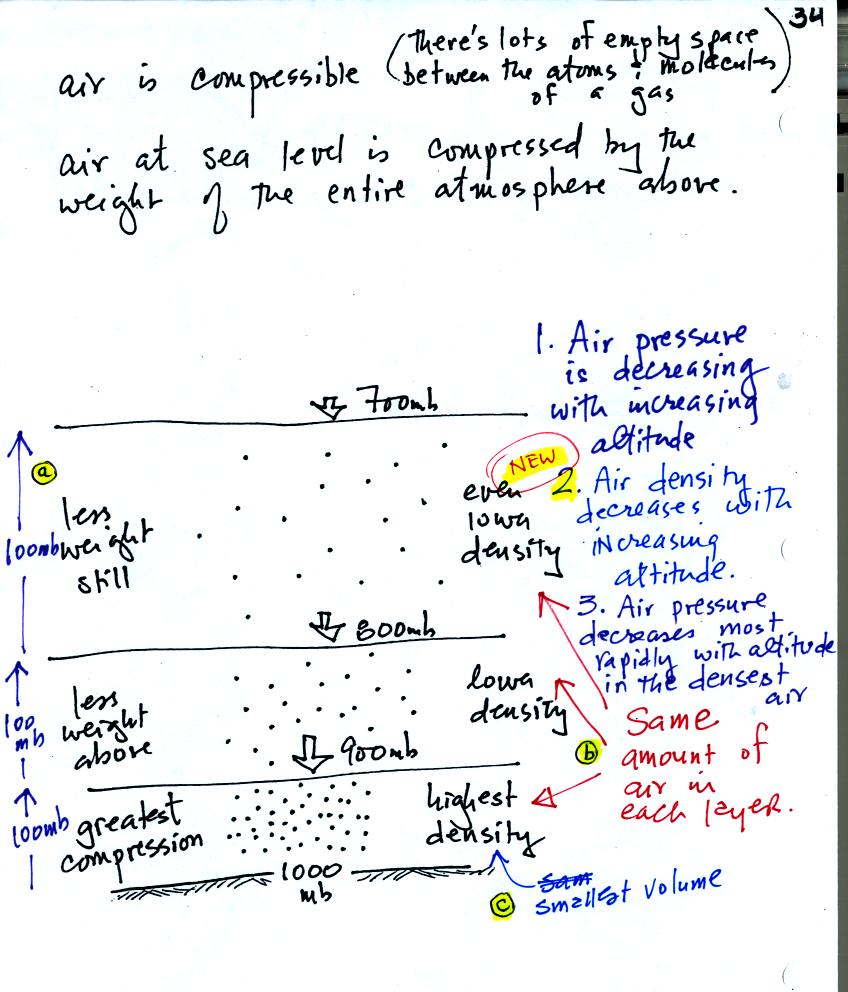 34
air is compressible (there's lots of empty space
between the atoms & molecules
of a gas)
air at sea level is compressed by the
weight of the entire atmosphere above.
1. Air pressure
is decreasing
with increasing
altitude
700mb
NEW
2. Air density
decreases with
increasing
altitude.
a
100mb
less
weight
still
even
lower
density
3. Air pressure
decreases most
rapidly with altitude
in the densest
air
800mb
100
mb
less
weight
above
lower
density
b
Same
amount of
air in
each layer.
900mb
100mb
greatest
compression
highest
density
1000
mb
c
sam
smallest volume